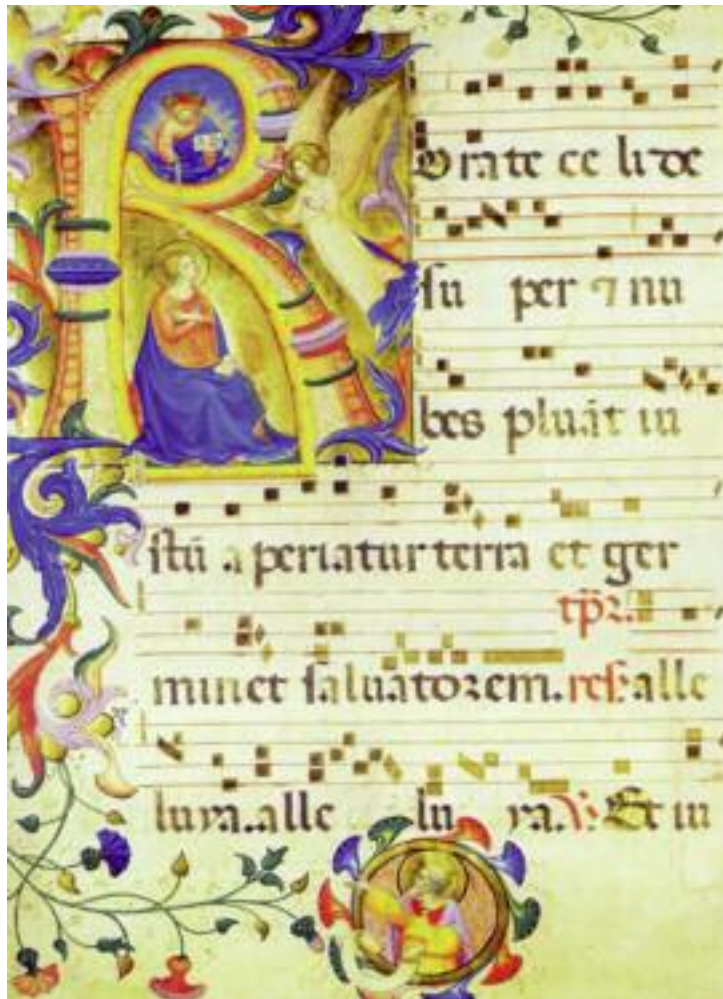 R
Orate celi de
su per ⁊ nu
bes pluāt iu
stū aperiatur terra et ger
tp̄r.
minet saluatorem. res. alle
luya. alle lu ya. V. Et iu